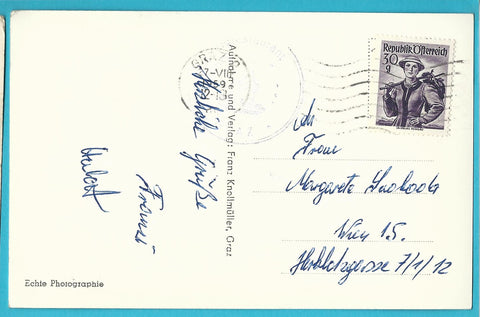 Herzliche Grüße
Franzi
Hubert
Aufnahme und Verlag: Franz Knollmüller, Graz
Echte Photographie
Republik Österreich
30
g
An
Frau
Margarete Swoboda
Wien 15.
7/1/12